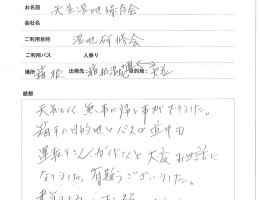 お名前 矢並湿地保存会
会社名
ご利用目的 湿地研修会
ご利用バス 人乗り
場所 箱根 出発先: 箱根湿 目的地:
感想
天気もよく無事に帰る事ができました。
箱根の目的地とバスの道中も
運転手さん、ガイドさんと大変お世話に
なりました。有難うございました。